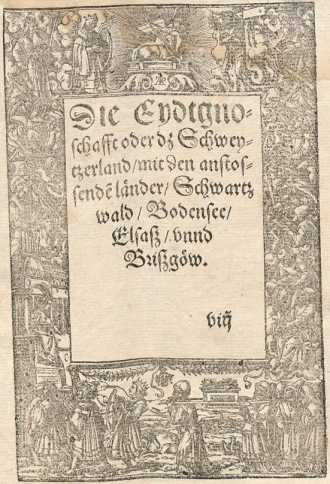 Die Eydtgno⸗
schafft oder dz̃ Schwey⸗
tzerland / mit den anstos⸗
sendẽ länder / Schwartz
wald / Bodensee /
Elsasz / vnnd
Briszgöw.
viij